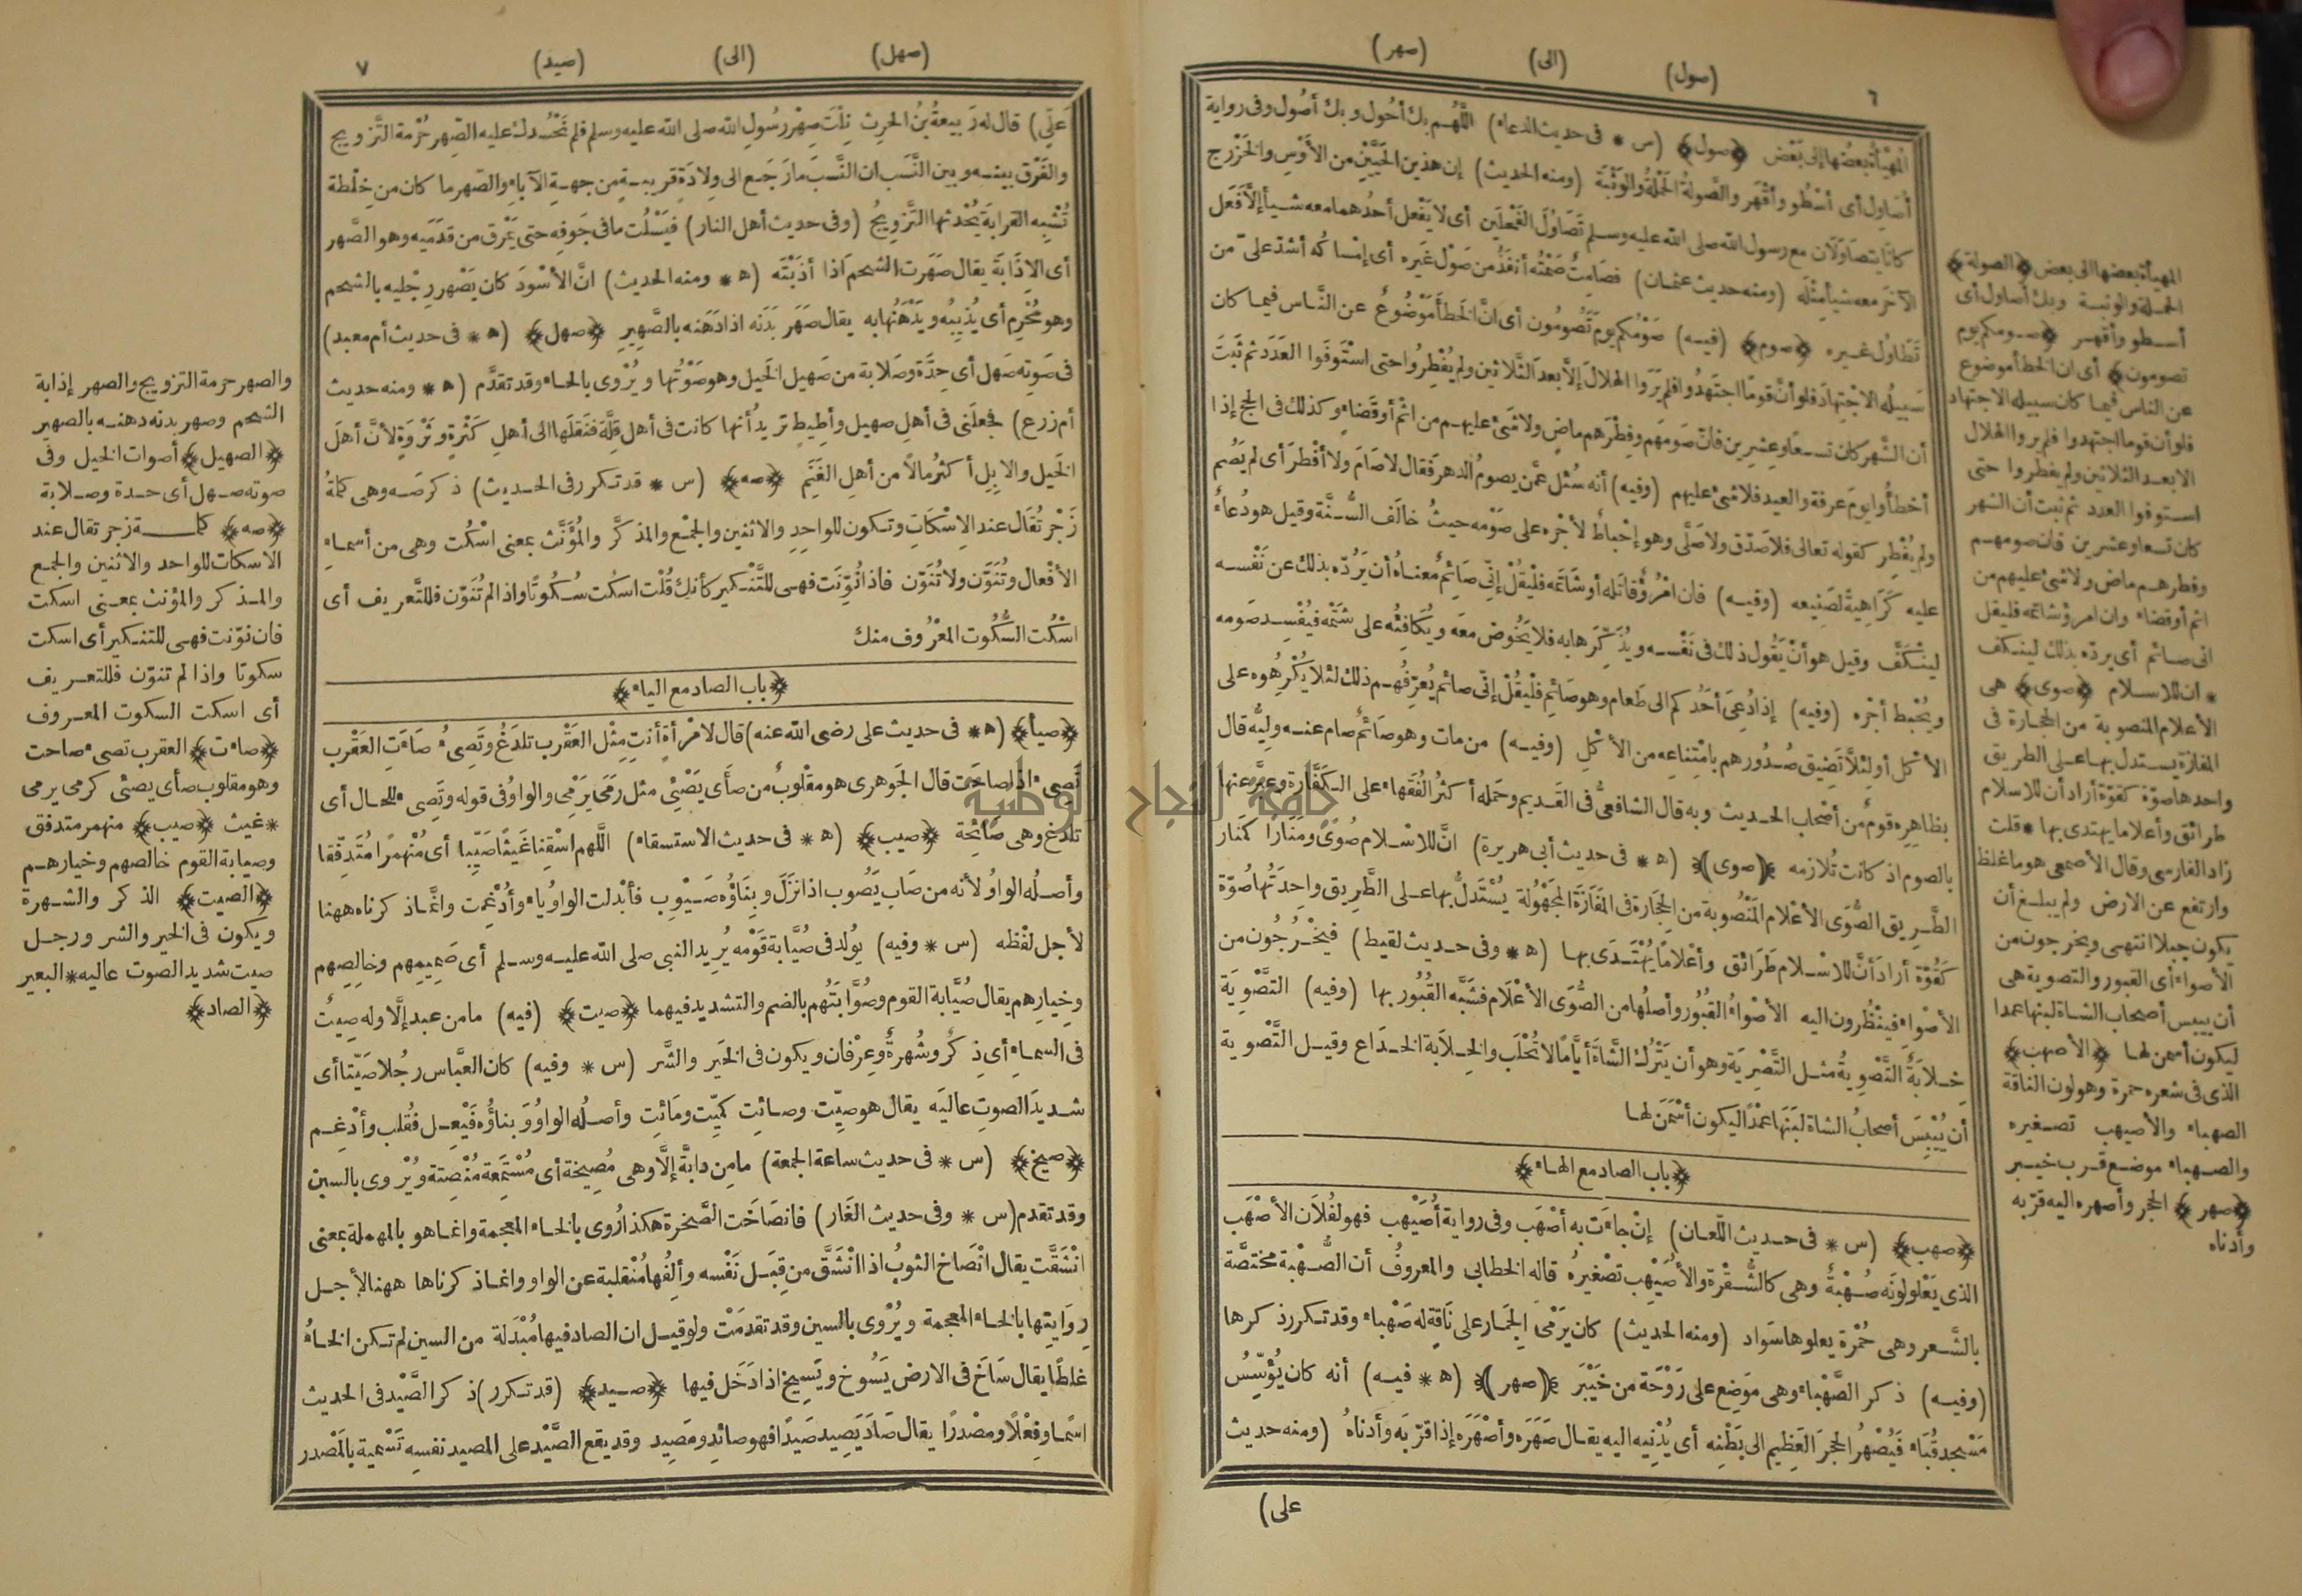 ٦
(صول)
(الى)
(صهر)
المهيأة بعضها إلى بعض ﴿صول﴾ (س * فى حديث الدعاء) اللهم بك أحول وبك أصول وفى رواية
أصاول أى أسطو وأقهر والصولة الحملة والوثبة (ومنه الحديث) إن هذين الحيين من الأوس والخزرج
كانا يتصاولان مع رسول الله صلى الله عليه وسلم تصاول الفحلين أى لا يفعل أحدهما معه شيأ إلا فعل
الآخر معه شيأ مثله (ومنه حديث عثمان) فصامت صمته أنفذ من صول غيره أى إمساكه أشد على من
تطاول غيره ﴿صوم﴾ (فيه) صومكم يوم تصومون أى ان الخطأ موضوع عن الناس فيما كان
سبيله الاجتهاد فلو أن قوما اجتهدوا فلم يروا الهلال إلا بعد الثلاثين ولم يفطروا حتى استوفوا العدد ثم ثبت
أن الشهر كان تسعا وعشرين فان صومهم وفطرهم ماض ولا شئ عليهم من اثم أو قضاء وكذلك فى الحج إذا
أخطأوا يوم عرفة والعيد فلا شئ عليهم (وفيه) أنه سئل عمن يصوم الدهر فقال لا صام ولا أفطر أى لم يصم
ولم يفطر كقوله تعالى فلا صدق ولا صلى وهو إحباط لأجره على صومه حيث خالف السنة وقيل هو دعاء
عليه كراهية لصنيعه (وفيه) فان امرؤ قاتله أو شاتمه فليقل إنى صائم معناه أن يرده بذلك عن نفسه
لينكف وقيل هو أن يقول ذلك فى نفسه ويذكرها به فلا يخوض معه ويكافئه على شتمه فيفسد صومه
ويحبط أجره (وفيه) إذا دعى أحدكم الى طعام وهو صائم فليقل إنى صائم يعرفهم ذلك لئلا يكرهوه على
الأكل أو لئلا تضيق صدورهم بامتناعه من الأكل (وفيه) من مات وهو صائم صام عنه وليه قال
بظاهره قوم من أصحاب الحديث وبه قال الشافعى فى القديم وحمله أكثر الفقهاء على الكفارة وعبر عنها
بالصوم اذ كانت تلازمه ﴿صوى﴾ (ه * فى حديث أبى هريرة) ان للاسلام صوى ومنارا كمنار
الطريق الصوى الأعلام المنصوبة من الحجارة فى المفازة المجهولة يستدل بها على الطريق واحدتها صوة
كقوة أراد أن للاسلام طرائق وأعلاما يهتدى بها (ه * وفى حديث لقيط) فيخرجون من
الأصواء فينظرون اليه الأصواء القبور وأصلها من الصوى الأعلام فشبه القبور بها (وفيه) التصوية
خلابة التصوية مثل التصرية وهو أن يترك الشاة أياما لا تحلب والخلابة الخداع وقيل التصوية
أن ييبس أصحاب الشاة لبنها عمدا ليكون أسمن لها
﴿باب الصاد مع الهاء﴾
﴿صهب﴾ (س * فى حديث اللعان) إن جاءت به أصهب وفى رواية أصيهب فهو لفلان الأصهب
الذى يعلو لونه صهبة وهى كالشقرة والأصيهب تصغيره قاله الخطابى والمعروف أن الصهبة مختصة
بالشعر وهى حمرة يعلوها سواد (ومنه الحديث) كان يرمى الجمار على ناقة له صهباء وقد تكرر ذكرها
(وفيه) ذكر الصهباء وهى موضع على روحة من خيبر ﴿صهر﴾ (ه * فيه) أنه كان يؤسس
مسجد قباء فيصهر الحجر العظيم الى بطنه أى يدنيه اليه يقال صهره وأصهره إذا قربه وأدناه (ومنه حديث
على)
المهيأة بعضها الى بعض ﴿الصولة﴾
الحملة والوثبة وبك أصاول أى
أسطو وأقهر ﴿صومكم يوم
تصومون﴾ أى ان الخطأ موضوع
عن الناس فيما كان سبيله الاجتهاد
فلو أن قوما اجتهدوا فلم يروا الهلال
الا بعد الثلاثين ولم يفطروا حتى
استوفوا العدد ثم ثبت أن الشهر
كان تسعا وعشرين فان صومهم
وفطرهم ماض ولا شئ عليهم من
اثم أو قضاء وان امرؤ شاتمه فليقل
انى صائم أى يرده بذلك لينكف
* ان للاسلام ﴿صوى﴾ هى
الأعلام المنصوبة من الحجارة فى
المفازة يستدل بها على الطريق
واحدها صوة كقوة أراد أن للاسلام
طرائق وأعلاما يهتدى بها * قلت
زاد الفارسى وقال الأصمعى هو ما غلظ
وارتفع عن الارض ولم يبلغ أن
يكون جبلا انتهى ويخرجون من
الأصواء أى القبور والتصوية هى
أن ييبس أصحاب الشاة لبنها عمدا
ليكون أسمن لها ﴿الأصهب﴾
الذى فى شعره حمرة وهو لون الناقة
الصهباء والأصيهب تصغيره
والصهباء موضع قرب خيبر
﴿صهر﴾ الحجر وأصهره اليه قربه
وأدناه
(صهل)
(الى)
(صيد)
٧
على) قال له ربيعة بن الحرث نلت صهر رسول الله صلى الله عليه وسلم فلم نحسدك عليه الصهر حرمة التزويج
والفرق بينه وبين النسب ان النسب ما رجع الى ولادة قريبة من جهة الآباء والصهر ما كان من خلطة
تشبه القرابة يحدثها التزويج (وفى حديث أهل النار) فيسلت ما فى جوفه حتى يمرق من قدميه وهو الصهر
أى الاذابة يقال صهرت الشحم اذا أذبته (ه * ومنه الحديث) ان الأسود كان يصهر رجليه بالشحم
وهو محرم أى يذيبه ويدهنها به يقال صهر بدنه اذا دهنه بالصهير ﴿صهل﴾ (ه * فى حديث أم معبد)
فى صوته صهل أى حدة وصلابة من صهيل الخيل وهو صوتها ويروى بالحاء وقد تقدم (ه * ومنه حديث
أم زرع) فجعلنى فى أهل صهيل وأطيط تريد أنها كانت فى أهل قلة فنقلها الى أهل كثرة وثروة لأن أهل
الخيل والابل أكثر مالا من أهل الغنم ﴿صه﴾ (س * قد تكرر فى الحديث) ذكر صه وهى كلمة
زجر تقال عند الاسكات وتكون للواحد والاثنين والجمع والمذكر والمؤنث بمعنى اسكت وهى من أسماء
الأفعال وتنون ولا تنون فاذا نونت فهى للتنكير كأنك قلت اسكت سكوتا واذا لم تنون فللتعريف أى
اسكت السكوت المعروف منك
﴿باب الصاد مع الياء﴾
﴿صيأ﴾ (ه * فى حديث على رضى الله عنه) قال لامرأة أنت مثل العقرب تلدغ وتصىء صاءت العقرب
تصىء اذا صاحت قال الجوهرى هو مقلوب من صأى يصئى مثل رمى يرمى والواو فى قوله وتصىء للحال أى
تلدغ وهى صائحة ﴿صيب﴾ (ه * فى حديث الاستسقاء) اللهم اسقنا غيثا صيبا أى منهمرا متدفقا
وأصله الواو لأنه من صاب يصوب اذا نزل وبناؤه صيوب فأبدلت الواو ياء وأدغمت وانما ذكرناه ههنا
لأجل لفظه (س * وفيه) يولد فى صيابة قومه يريد النبى صلى الله عليه وسلم أى صميمهم وخالصهم
وخيارهم يقال صيابة القوم وصوابتهم بالضم والتشديد فيهما ﴿صيت﴾ (فيه) ما من عبد إلا وله صيت
فى السماء أى ذكر وشهرة وعرفان ويكون فى الخير والشر (س * وفيه) كان العباس رجلا صيتا أى
شديد الصوت عاليه يقال هو صيت وصائت كميت ومائت وأصله الواو وبناؤه فيعل فقلب وأدغم
﴿صيخ﴾ (س * فى حديث ساعة الجمعة) ما من دابة إلا وهى مصيخة أى مستمعة منصتة ويروى بالسين
وقد تقدم (س * وفى حديث الغار) فانصاخت الصخرة هكذا روى بالخاء المعجمة وانما هو بالمهملة بمعنى
انشقت يقال انصاخ الثوب اذا انشق من قبل نفسه وألفها منقلبة عن الواو وانما ذكرناها ههنا لأجل
روايتها بالخاء المعجمة ويروى بالسين وقد تقدمت ولو قيل ان الصاد فيها مبدلة من السين لم تكن الخاء
غلطا يقال ساخ فى الارض يسوخ ويسيخ اذا دخل فيها ﴿صيد﴾ (قد تكرر) ذكر الصيد فى الحديث
اسما وفعلا ومصدرا يقال صاد يصيد صيدا فهو صائد ومصيد وقد يقع الصيد على المصيد نفسه تسمية بالمصدر
والصهر حرمة التزويج والصهر إذابة
الشحم وصهر بدنه دهنه بالصهير
﴿الصهيل﴾ أصوات الخيل وفى
صوته صهل أى حدة وصلابة
﴿صه﴾ كلمة زجر تقال عند
الاسكات للواحد والاثنين والجمع
والمذكر والمؤنث بمعنى اسكت
فان نونت فهى للتنكير أى اسكت
سكوتا واذا لم تنون فللتعريف
أى اسكت السكوت المعروف
﴿صاءت﴾ العقرب تصىء صاحت
وهو مقلوب صأى يصئى كرمى يرمى
* غيث ﴿صيب﴾ منهمر متدفق
وصيابة القوم خالصهم وخيارهم
﴿الصيت﴾ الذكر والشهرة
ويكون فى الخير والشر ورجل
صيت شديد الصوت عاليه * البعير
﴿الصاد﴾
جامعة النجاح الوطنية